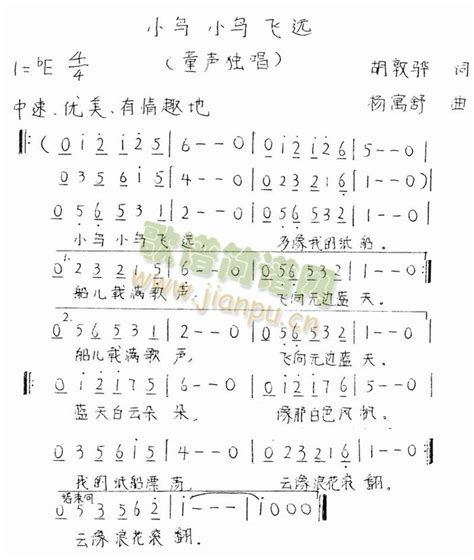 小鸟 小鸟 飞远
(童声独唱)
1=ᵇE 4/4
胡敦骅 词
中速、优美、有情趣地
杨寓舒 曲
‖:(0 1 2 1 2 5 | 6 - - 0 | 0 1 2 1 2 6 | 5 - - 0 |
0 3 5 6 1 5 | 4 - - 0 | 0 2 3 2 1 6 | 1 - - 0) |
0 5 6 5 3 1 | 2 - - 0 | 0 5 6 5 3 2 | 1 - - 0 |
小鸟 小鸟 飞 远, 多像我的纸 船。
1.
0 2 3 2 1 6 | 2 - - 0 | 0 5 6 5 3 2 | 1 - - 0 :‖
船儿载满歌 声 飞向无边蓝 天。
2.
0 5 6 5 3 1 | 2 - - 0 | 0 5 6 5 3 2 | 1 - - 0 |
船儿载满歌 声, 飞向无边蓝 天。
‖: 0 1 2 1 7 5 | 6 - - 0 | 0 1 2 1 7 6 | 5 - - 0 |
蓝天白云朵 朵, 像那白色风 帆。
0 3 5 6 1 5 | 4 - - 0 | 0 2 3 2 1 6 | 1 - - 0 :‖
我的纸船漂 荡, 云像浪花滚 翻。
结束句
0 5 3 5 6 2 | 1 - - - | 1 0 0 0 ‖
云像浪花滚 翻。
歌谱简谱网
www.jianpu.cn